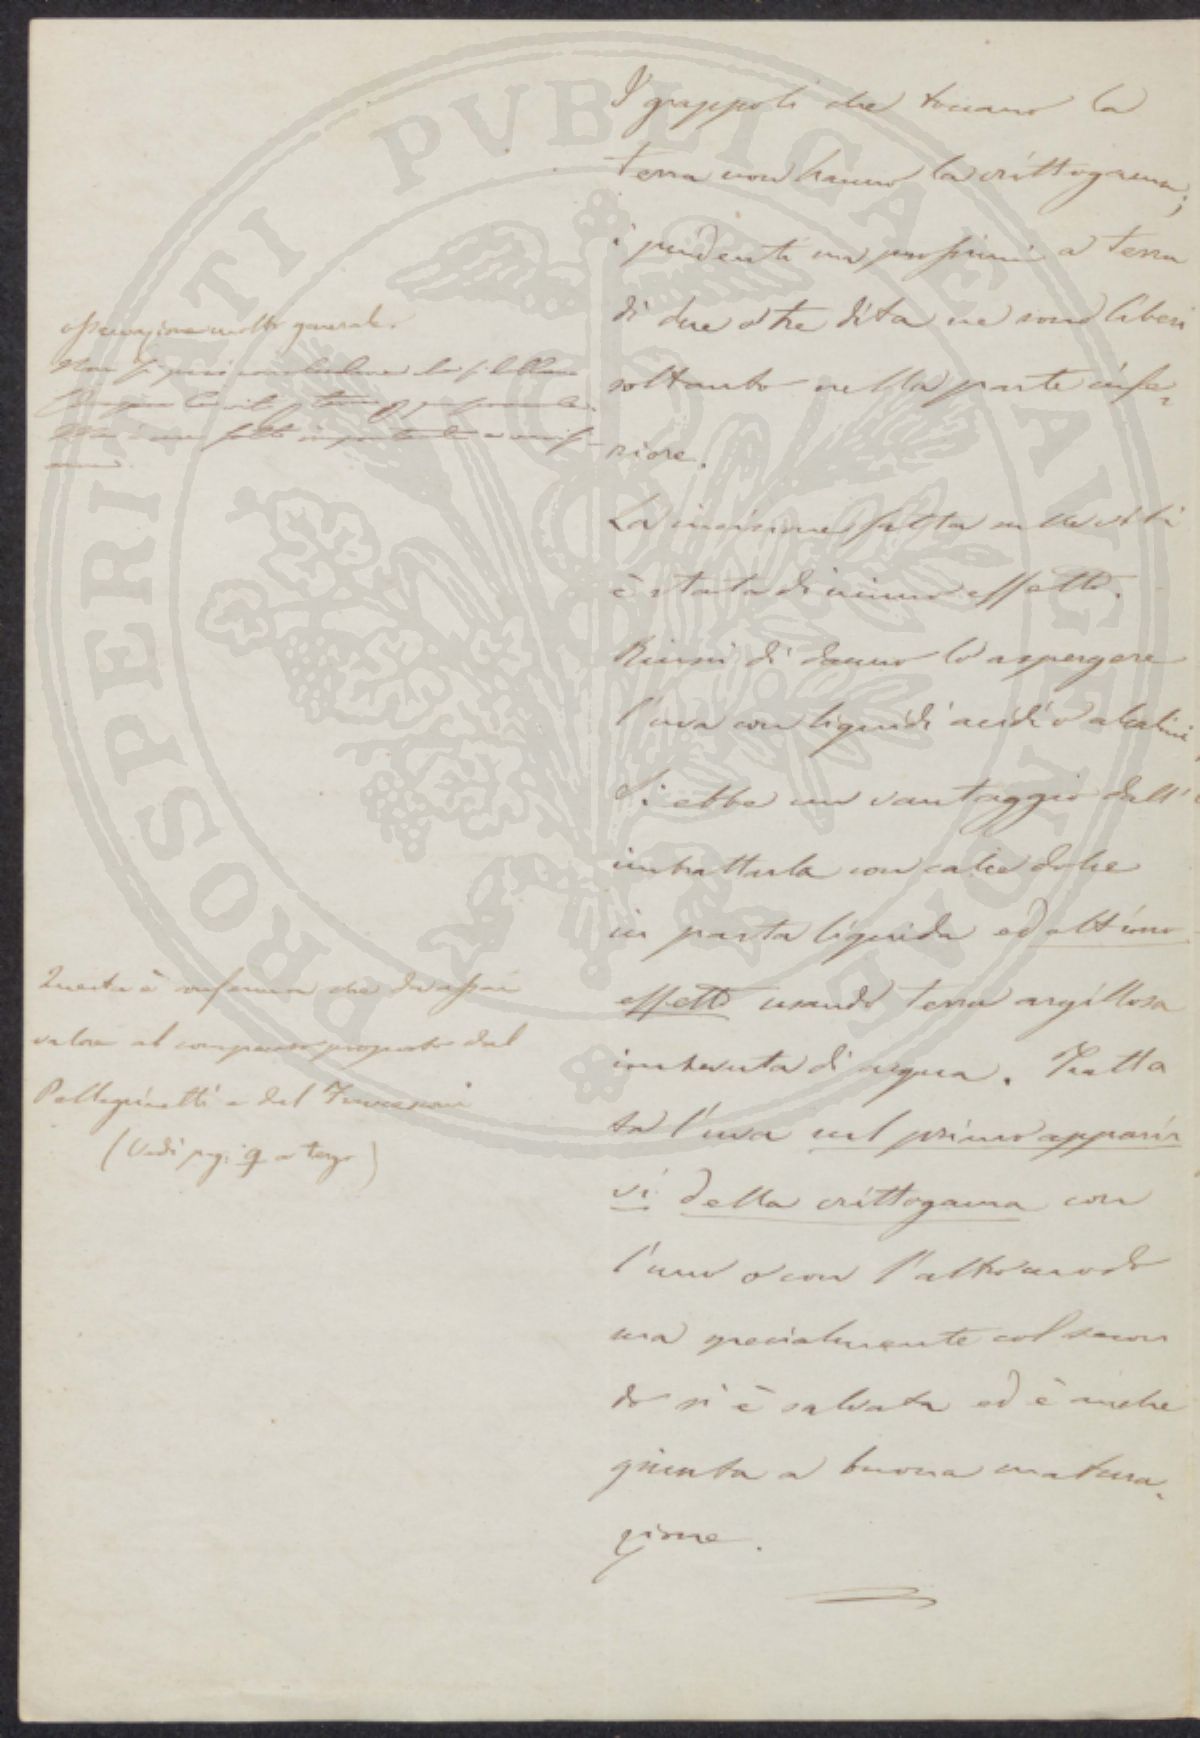 I grappoli che toccano la
terra non hanno la crittogama;
i pendenti ma prossimi a terra
di due o tre dita ne sono liberi
soltanto nella parte infe-
riore.
La incisione fatta nelle viti
è stata di niuno effetto.
Riuscì di danno lo aspergere
l'uva con liquidi acidi o alcalini
Si ebbe un vantaggio dall'
imbrattarla con calce dolce
in pasta liquida ed ottimo
effetto usando terra argillosa
imbevuta di acqua. Tratta
ta l'uva nel primo apparir
vi della crittogama con
l'uno o con l'altro modo
ma specialmente col secon
do si è salvata ed è anche
giunta a buona matura-
zione.
osservazione molto generale.
Non si può concludere
Ma è un fatto importante
Questa è conferma che dà assai
valore al compenso proposto dal
Pellegrinetti e dal
(Vedi pag: 9 a tergo)
PROSPERITATI PVBLICAE AVGENDAE